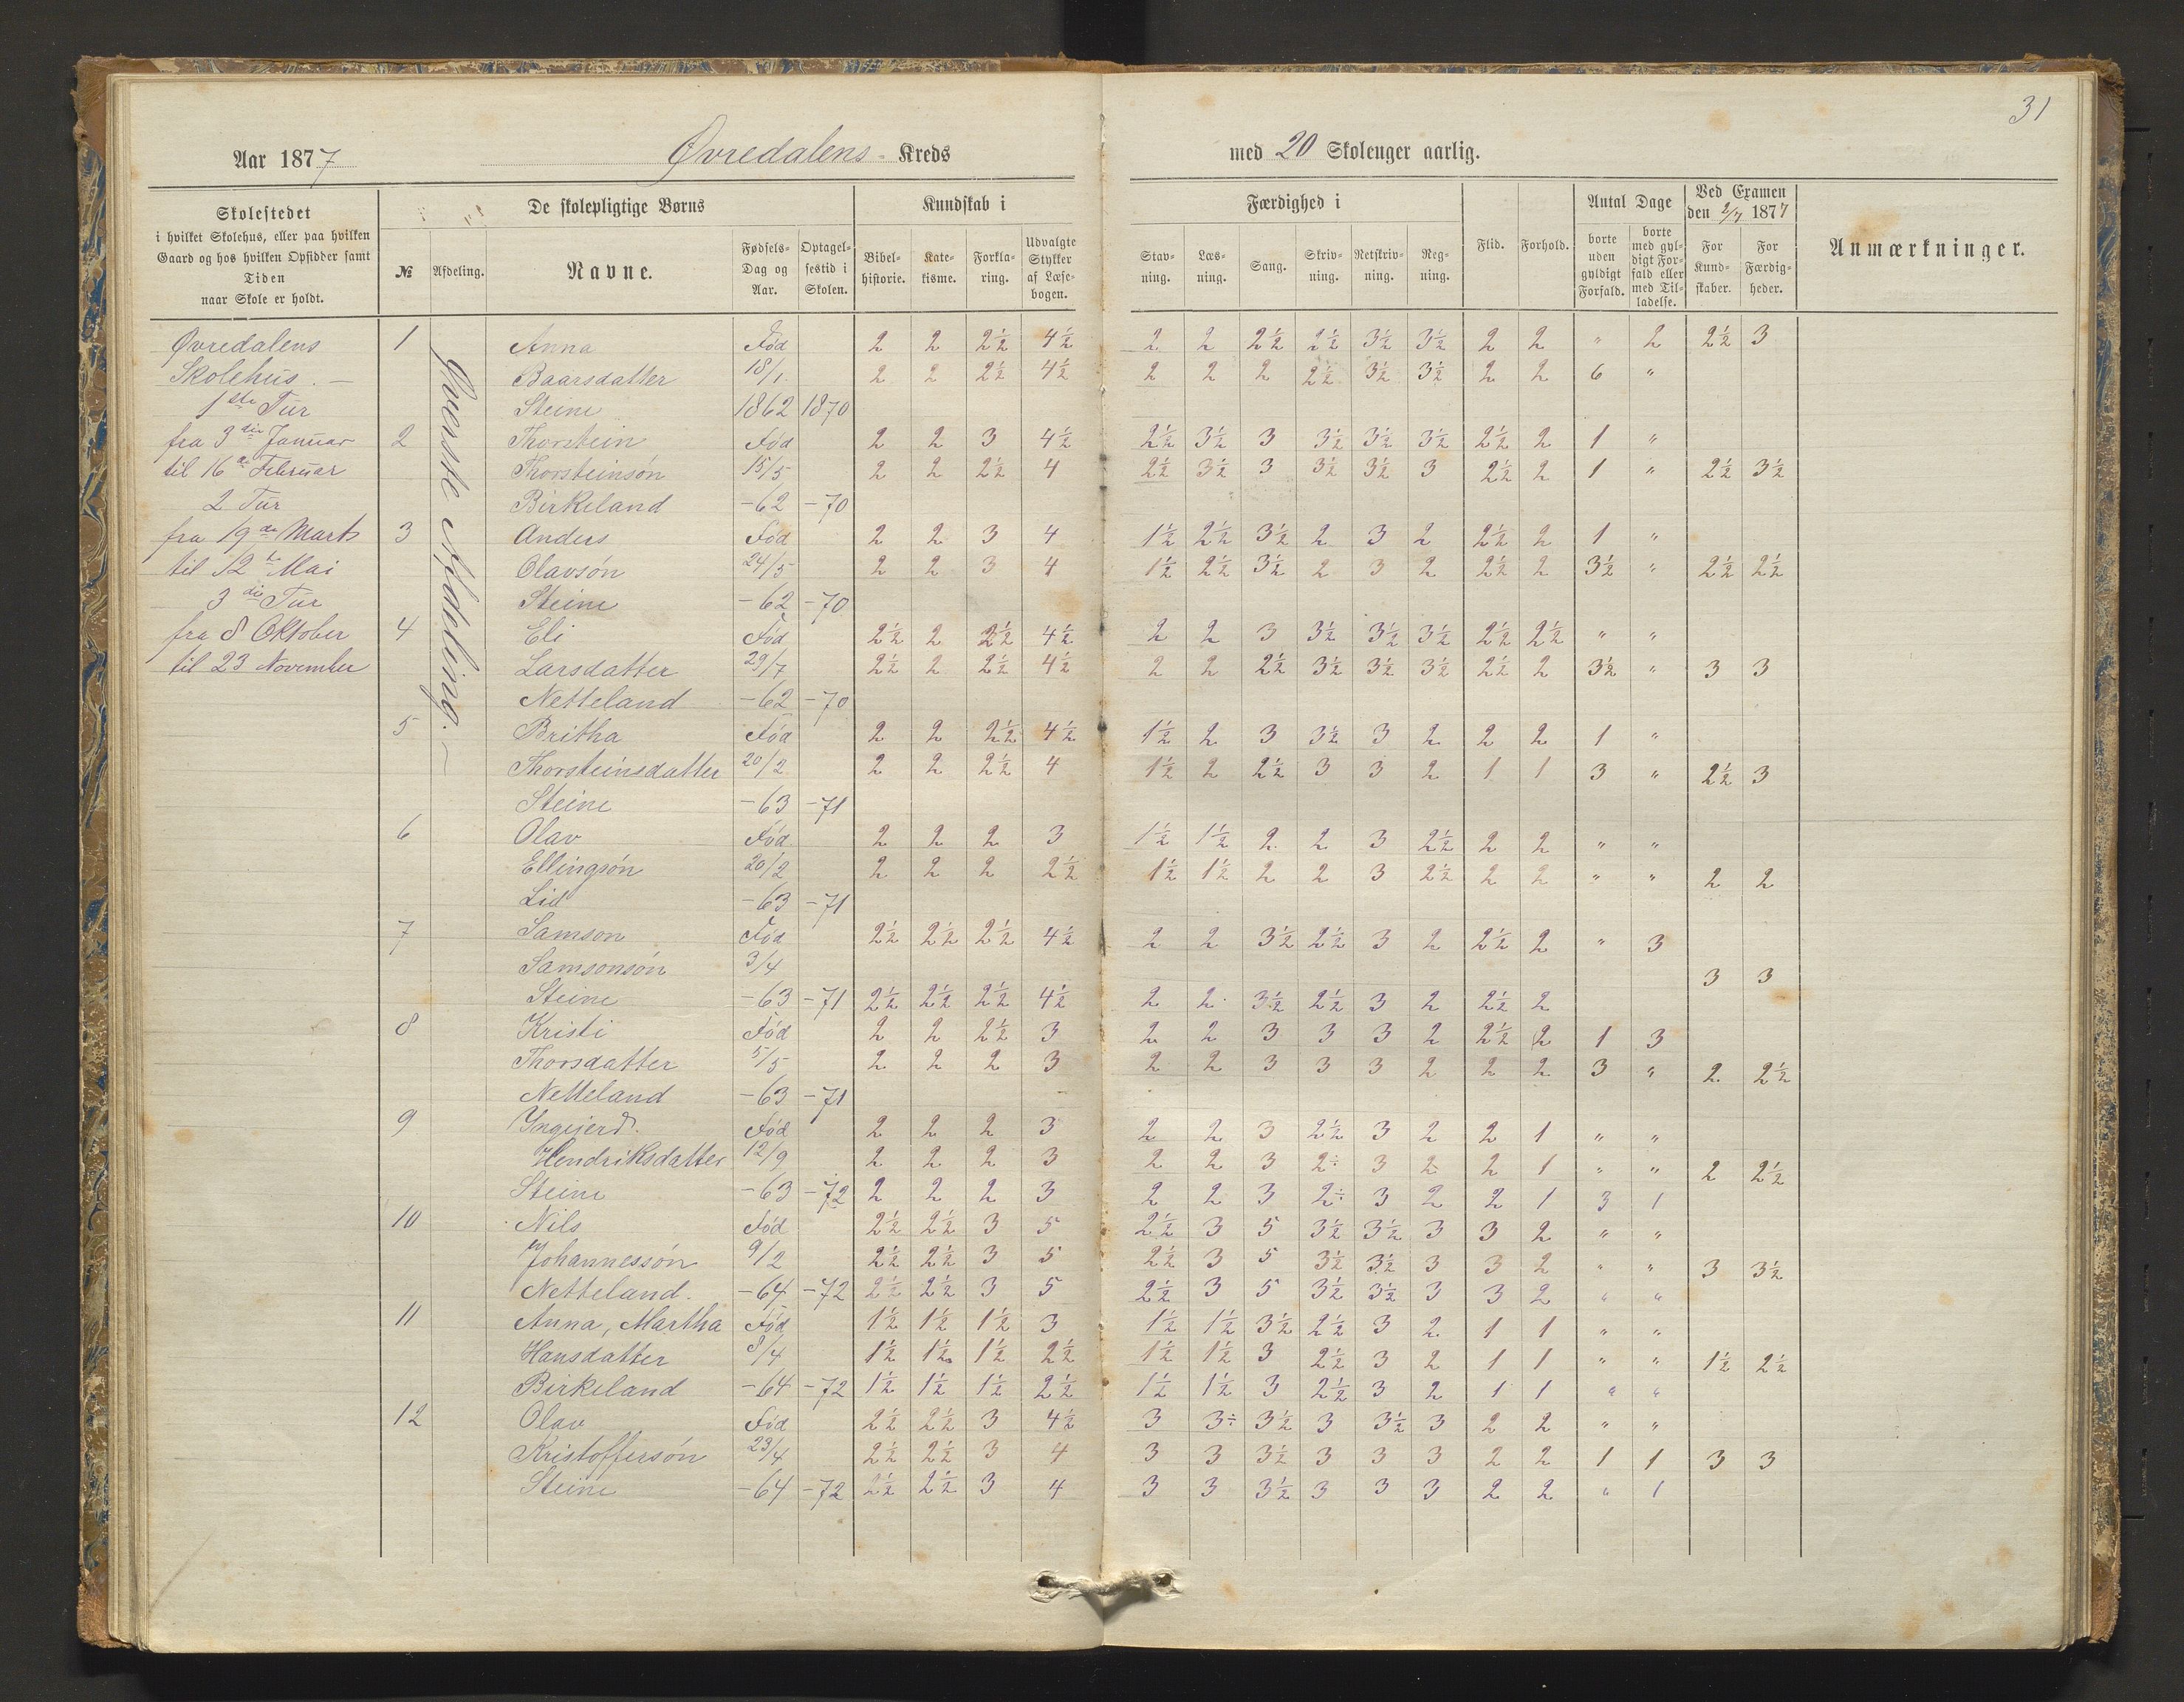 31
Aar 1877 Øvredalens Kreds med 20 Skoleuger aarlig.
Skolestedet
i hvilket Skolehus, eller paa hvilken
Gaard og hos hvilken Opsidder samt
Tiden
naar Skole er holdt.
De skolepligtige Børns
№ Afdeling. Navne. Fødsels-Dag og Aar. Optagelsestid i Skolen.
Kundskab i
Bibelhistorie. Katekisme. Forklaring. Udvalgte Stykker af Læsebogen.
Færdighed i
Stavning. Læsning. Sang. Skrivning. Retskrivning. Regning.
Flid. Forhold.
Antal Dage
borte uden gyldigt Forfald. borte med gyldigt Forfald eller med Tilladelse.
Ved Examen den 2/7 1877
For Kundskaber. For Færdigheder.
Anmærkninger.
Øvredalens
Skolehus. —
1ste Tur
fra 3die Januar
til 16de Februar
2 Tur
fra 19de Marts
til 12te Mai
3die Tur
fra 8 Oktober
til 23 November
Øverste Afdeling. —
1 Anna Fød 2 2 2½ 4½ 2 2 2½ 2½ 3½ 3½ 2 2 " 2 2½ 3
Baarsdatter 18/1. 2 2 2½ 4½ 2 2 2 2½ 3½ 3½ 2 2 6 "
Steine 1862 1870
2 Thorstein Fød 2 2 3 4½ 2½ 3½ 3 3½ 3½ 3½ 2½ 2 1 "
Thorsteinsøn 15/5 2 2 2½ 4 2½ 3½ 3 3½ 3½ 3 2½ 2 1 " 2½ 3½
Birkeland -62 -70
3 Anders Fød 2 2 3 4 1½ 2½ 3½ 2 3 2 2½ 2 1 "
Olavsøn 24/5 2 2 3 4 1½ 2½ 3½ 2 3 2 2½ 2 3½ " 2½ 2½
Steine -62 -70
4 Eli Fød 2½ 2 2½ 4½ 2 2 3 3½ 3½ 3½ 2½ 2½ " "
Larsdatter 29/7 2½ 2 2½ 4½ 2 2 2½ 3½ 3½ 3½ 2½ 2 3½ " 3 3
Netteland -62 -70
5 Britha Fød 2 2 2½ 4½ 1½ 2 3 3½ 3 2 2 2 1 "
Thorsteinsdatter 20/2 2 2 2½ 4 1½ 2 2½ 3 3 2 1 1 3 " 2½ 3
Steine -63 -71
6 Olav Fød. 2 2 2 3 1½ 1½ 2 2 3 2½ 2 2 " "
Ellingsøn 20/2 2 2 2 2½ 1½ 1½ 2 2 3 2½ 2 2 " " 2 2
Lid -63 -71
7 Samson Fød 2½ 2½ 2½ 4½ 2 2 3½ 2½ 3 2 2½ 2 " 3
Samsonsøn 3/4 3 3
Steine -63 -71 2½ 2½ 2½ 4½ 2 2 3½ 2½ 3 2 2½ 2
8 Kristi Fød 2 2 2½ 3 2 2 3 3 3 2 2½ 2 1 3
Thorsdatter 5/5 2 2 2 3 2 2 3 3 3 2 2 2 3 " 2 2½
Netteland -63 -71
9 Yngjerd Fød 2 2 2 3 2 2 3 2½ 3 2 2 1 " "
Hendriksdatter 12/9 2 2 2 3 2 2 3 2÷ 3 2 2 1 " " 2 2½
Steine -63 -72 2 2 2 3 2 2 3 2÷ 3 2 2 1 3 1
10 Nils Fød 2½ 2½ 3 5 2½ 3 5 3½ 3½ 3 3 2 " "
Johannessøn 9/2 2½ 2½ 3 5 2½ 3 5 3½ 3½ 3 3 2 " " 3 3½
Netteland. -64 -72 2½ 2½ 3 5 2½ 3 5 3½ 3½ 3 3 2 " "
11 Anna, Martha Fød 1½ 1½ 1½ 3 1½ 1½ 3½ 2½ 3 2 1 1 " "
Hansdatter 8/4 1½ 1½ 1½ 2½ 1½ 1½ 3 2½ 3 2 1 1 " " 1½ 2½
Birkeland -64 -72 1½ 1½ 1½ 2½ 1½ 1½ 3 2½ 3 2 1 1 " "
12 Olav Fød 2½ 2½ 3 4½ 3 3÷ 3½ 3 3½ 3 2 2 " "
Kristoffersøn 23/4 2½ 2½ 3 4 3 3 3½ 3 3 3 2 2 1 1 3 3
Steine -64 -72 2½ 2½ 3 4 3 3 3½ 3 3 3 2 2 " 1